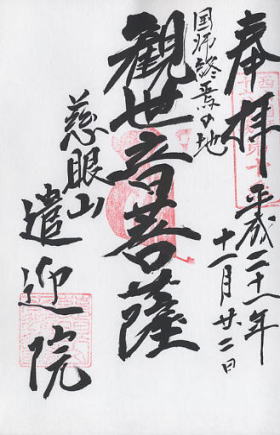 奉拝
平成二十一年
十一月廿二日
国師終焉の地
観世音菩薩
慈眼山
遣迎院